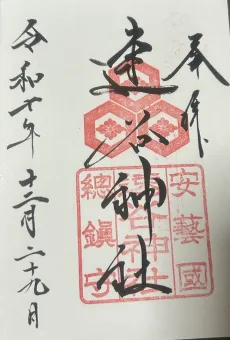 奉拝
速谷神社
安藝國
速谷神社
總鎮守
令和七年十二月二十九日